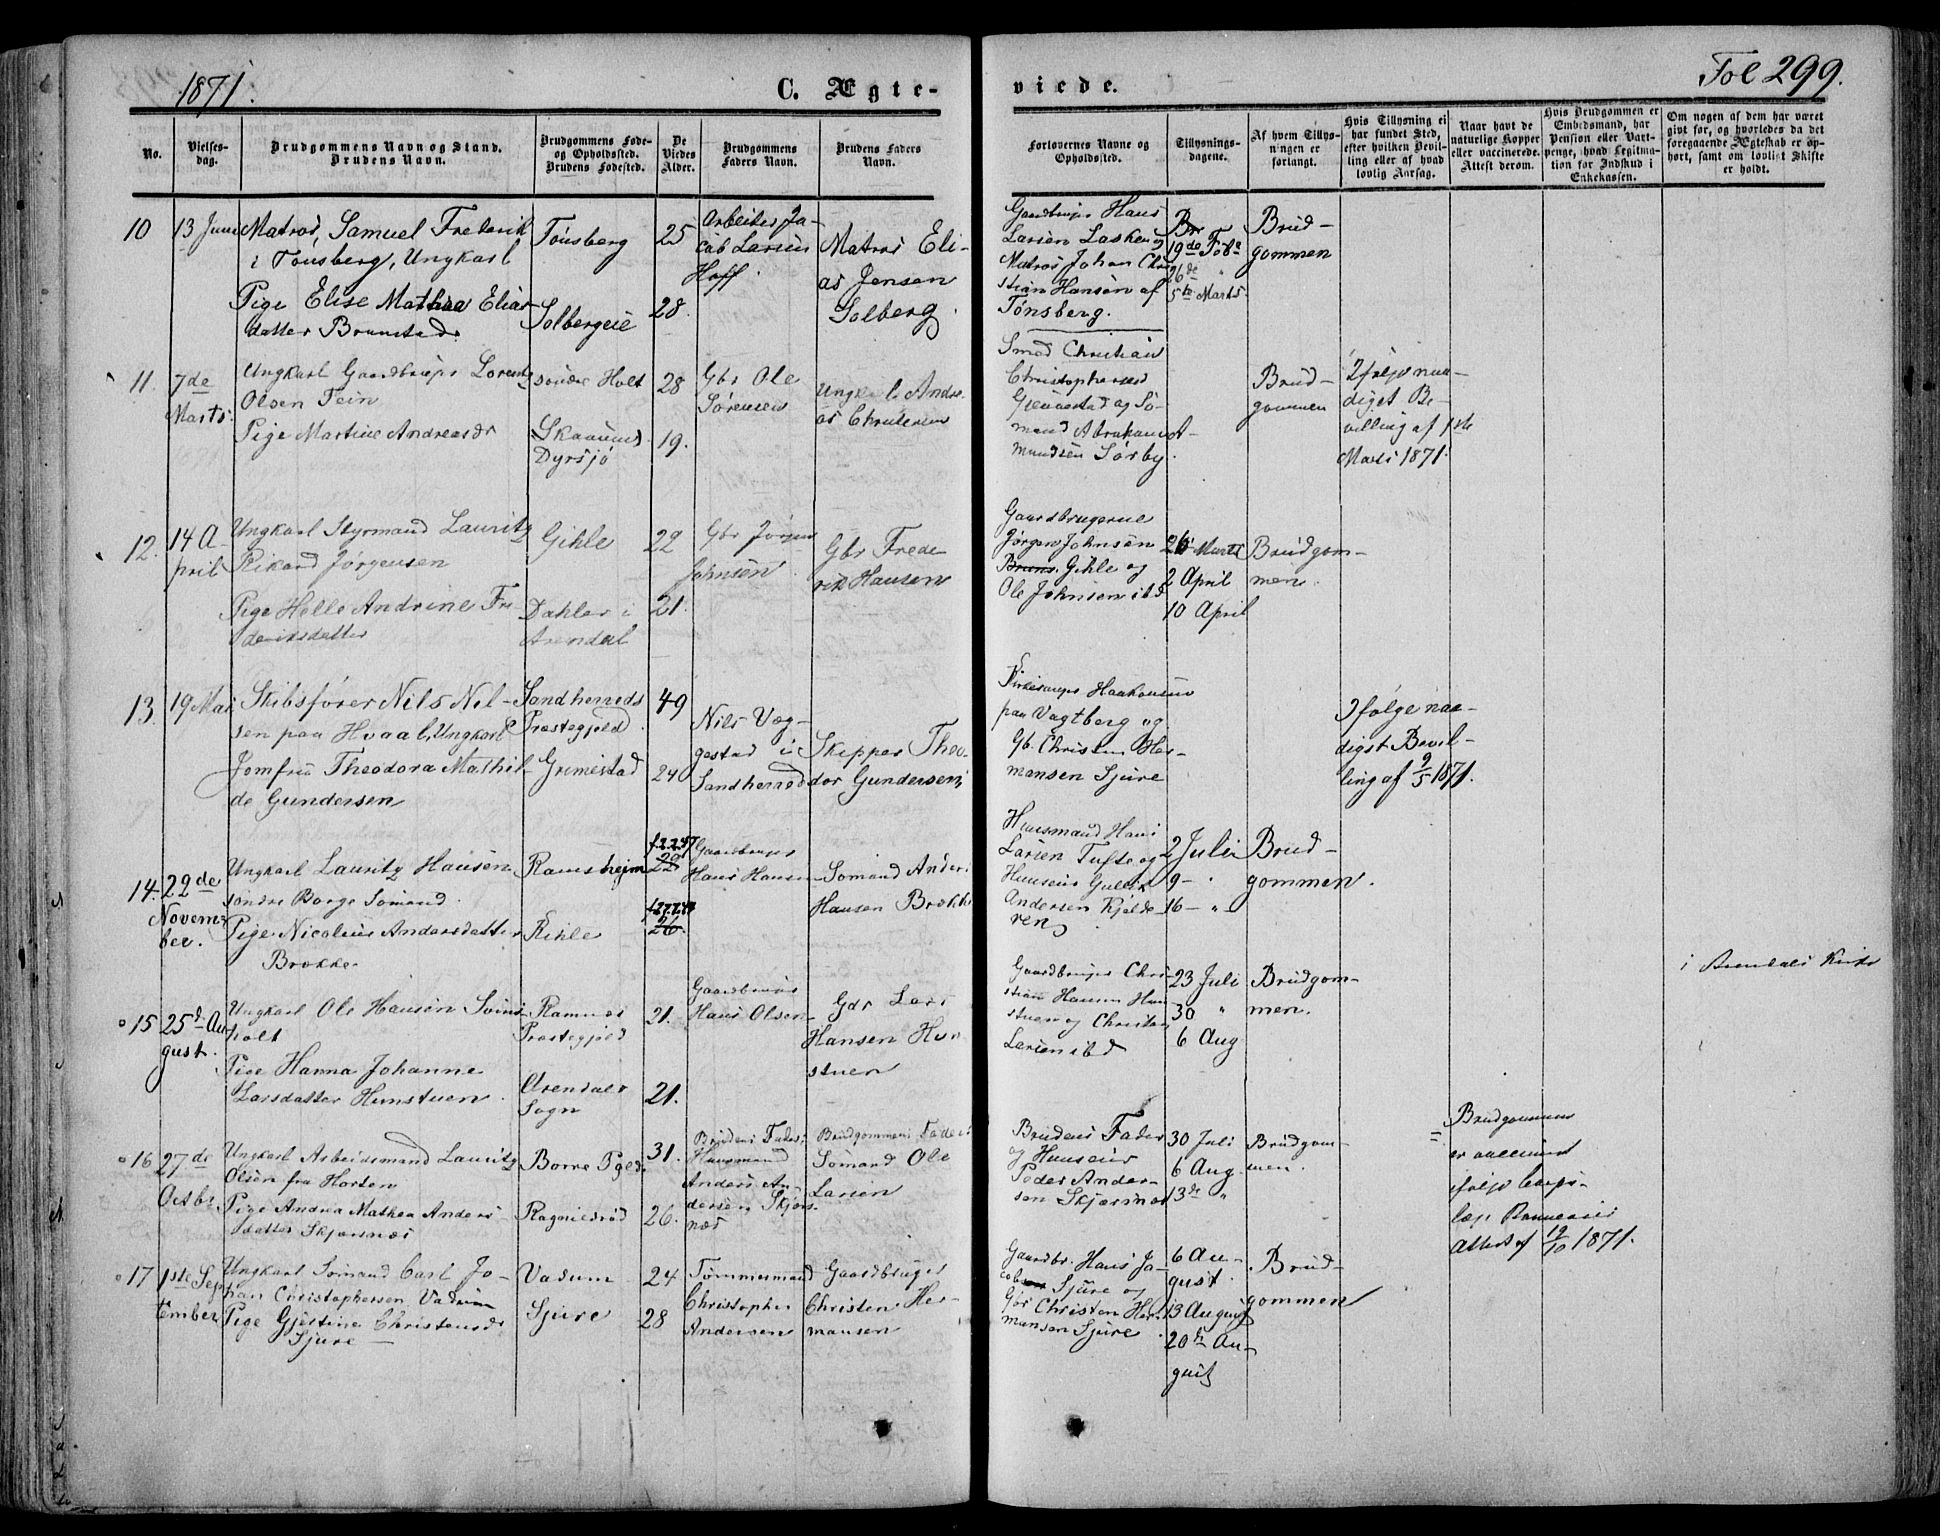 1871.
C. Ægte-
viede.
Fol 299.
No.
Vielses-
dag.
Brudgommens Navn og Stand.
Brudens Navn.
Brudgommens Føde-
og Opholdssted.
Brudens Fødested.
De
Viedes
Alder.
Brudgommens
Faders Navn.
Brudens Faders
Navn.
Forlovernes Navne og
Opholdssted.
Tillysnings-
dagene.
Af hvem Tillys-
ningen er
forlangt.
Hvis Tillysning ei
har fundet Sted,
efter hvilken Bevil-
ling eller af hvad
lovlig Aarsag.
Naar havt de
naturlige Kopper
eller vaccinerede.
Attest derom.
Hvis Brudgommen er
Embedsmand, har
Pension eller Vart-
penge, hvad Legitima-
tion for Indskud i
Enkekassen.
Om nogen af dem har været
gift før, og hvorledes da det
foregaaende Ægteskab er op-
hørt, samt om lovligt Skifte
er holdt.
10
13 Juni
Matros, Samuel Frederik
i Tønsberg, Ungkarl
Pige Elise Mathea Elias
datter Brunstad
Tønsberg
Solbergeie
25
28.
Arbeider Ja-
cob Larsen
Hoff.
Matros Eli-
as Jensen
Solberg.
Gaardbruger Hans
Larsen Lasken og
Matros Johan Chri
stian Hansen af
Tønsberg.
Br
19de Feb
26de "
5te Marts.
Brud-
gommen
11.
7de
Marts.
Ungkarl Gaardbruger Lorentz
Olsen Fein
Pige Martine Andreasdr
søndre Holt
Skaanund
Dyrsjø
28
19.
Gbr Ole
Sørensen
Ungkarl Andre
as Christensen
Smed Christian
Christophersen
Gjennestad og Sø-
mand Abraham A-
mundsen Sørby.
Brud-
gommen
Ifølge naa-
digst Be-
villing af 1ste
Marts 1871.
12.
14 A-
pril
Ungkarl Styrmand Lauritz
Rikard Jørgensen
Pige Helle Andrine Fre
deriksdatter
Gihle
Dahler i
Arendal
22
21.
Gbr Jørgen
Johnsen
Gbr Frede
rik Hansen
Gaardbrugerne
Jørgen Johnsen
Gihle og
Ole Johnsen ibd
26 Marts
2 April
10 April
Brudgom-
men.
13.
19 Mai
Skibsfører Nils Nil-
sen paa Hvaal, Ungkarl
Jomfru Theodora Mathil-
de Gundersen
Sandherreds
Præstegjeld
Grimestad
49
240
Nils Veg-
gestad i
Sandherred
Skipper Theo-
dor Gundersen
Kirkesanger Haakonsen
paa Vagtberg og
Gb. Christen Her-
mansen Sjure
Ifølge naa-
digst Bevil-
ling af 9/5 1871.
14.
22de
Novem-
ber.
Ungkarl Lauritz Hansen
søndre Borge Sømand.
Pige Nicoline Andersdatter
Brekke
Ramshejm
Kihle
26
Gaardbruger
Hans Hansen
Sømand Anders
Hansen Brekke
Huusmand Hans
Larsen Tufte og
Huuseier Gullik
Andersen Kjelde-
ren
2 Juli
9 - "
16 - "
Brud-
gommen.
15
25de Au-
gust.
Ungkarl Ole Hansen Svins-
holt
Pige Hanna Johanne
Larsdatter Hunstuen
Ramnæs
Præstegjeld
Arendals
Sogn
21.
21.
Gaardbruger
Hans Olsen
Gbr Lars
Hansen Hun
stuen
Gaardbruger Chri-
stian Hansen Hun
stuen og Christen
Larsen ibd
23 Juli
30 "
6 Aug
Brudgom-
men.
i Arendals Kirke
16
27de
Octbr
Ungkarl Arbeidsmand Lauritz
Olsen fra Horten
Pige Andrea Mathea Anders
datter Skjærsnæs
Borre Pgld
Ragnildrød
31.
26.
Brudens Fader:
Huusmand
Anders An-
dersen Skjærs-
næs
Brudgommens Fader:
Sømand Ole
Larsen
Brudens Fader
og Huuseier
Peder Ander-
sen Skjærsnæs
30 Juli
6 Aug
13de "
Brudgom-
men.
Brudgommen
er vaccineret
ifølge Corps-
læge
Attest af 19/10 1871.
17
1ste Sep
tember
Ungkarl Sømand Carl Jo-
han Christophersen Vadum
Pige Gjertine Christensdr
Sjure
Vadum
Sjure
24
28
Tømmermand
Christopher
Andersen
Gaardbruger
Christen Her-
mansen
Gaardbr. Hans Ja-
cobsen Sjure og
Gbr Christen Her-
mansen Sjure
6 Au-
gust.
13 August
20de Au-
gust
Brud-
gommen